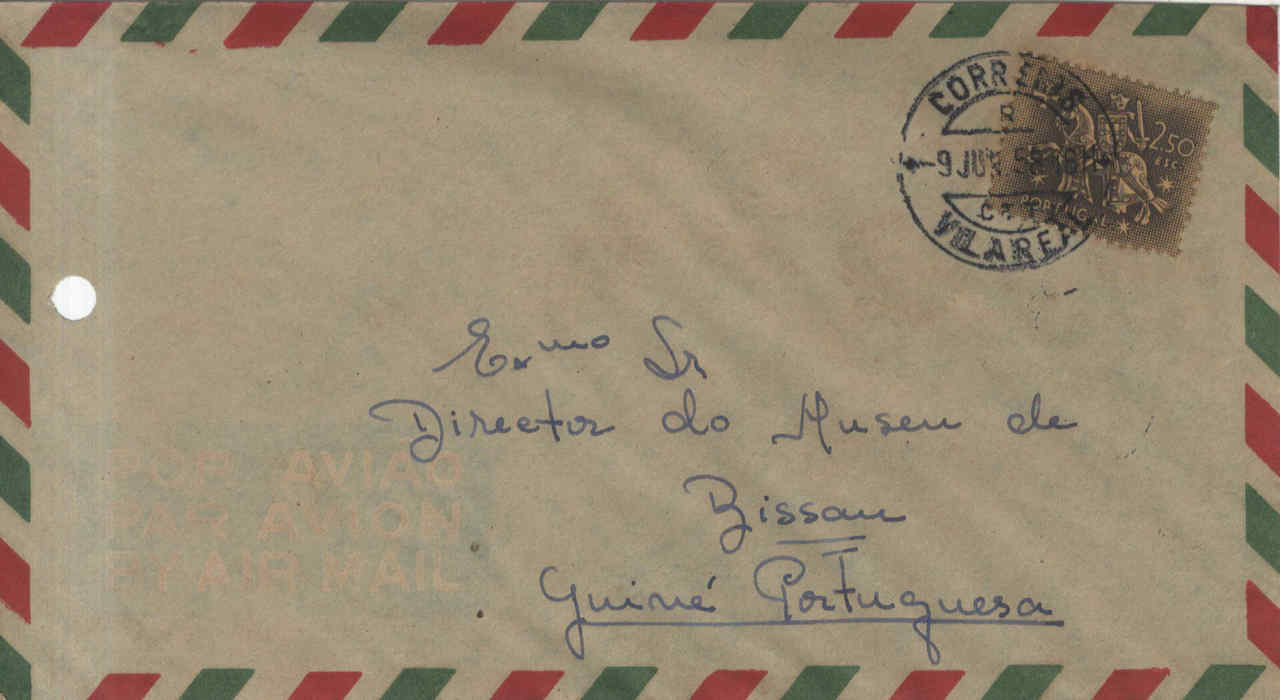 CORREIOS
2$50
ESC.
PORTUGAL
VILA REAL
Exmo Sr
Director do Museu de
Bissau
Guiné Portuguesa
POR AVIAO
PAR AVION
BY AIR MAIL